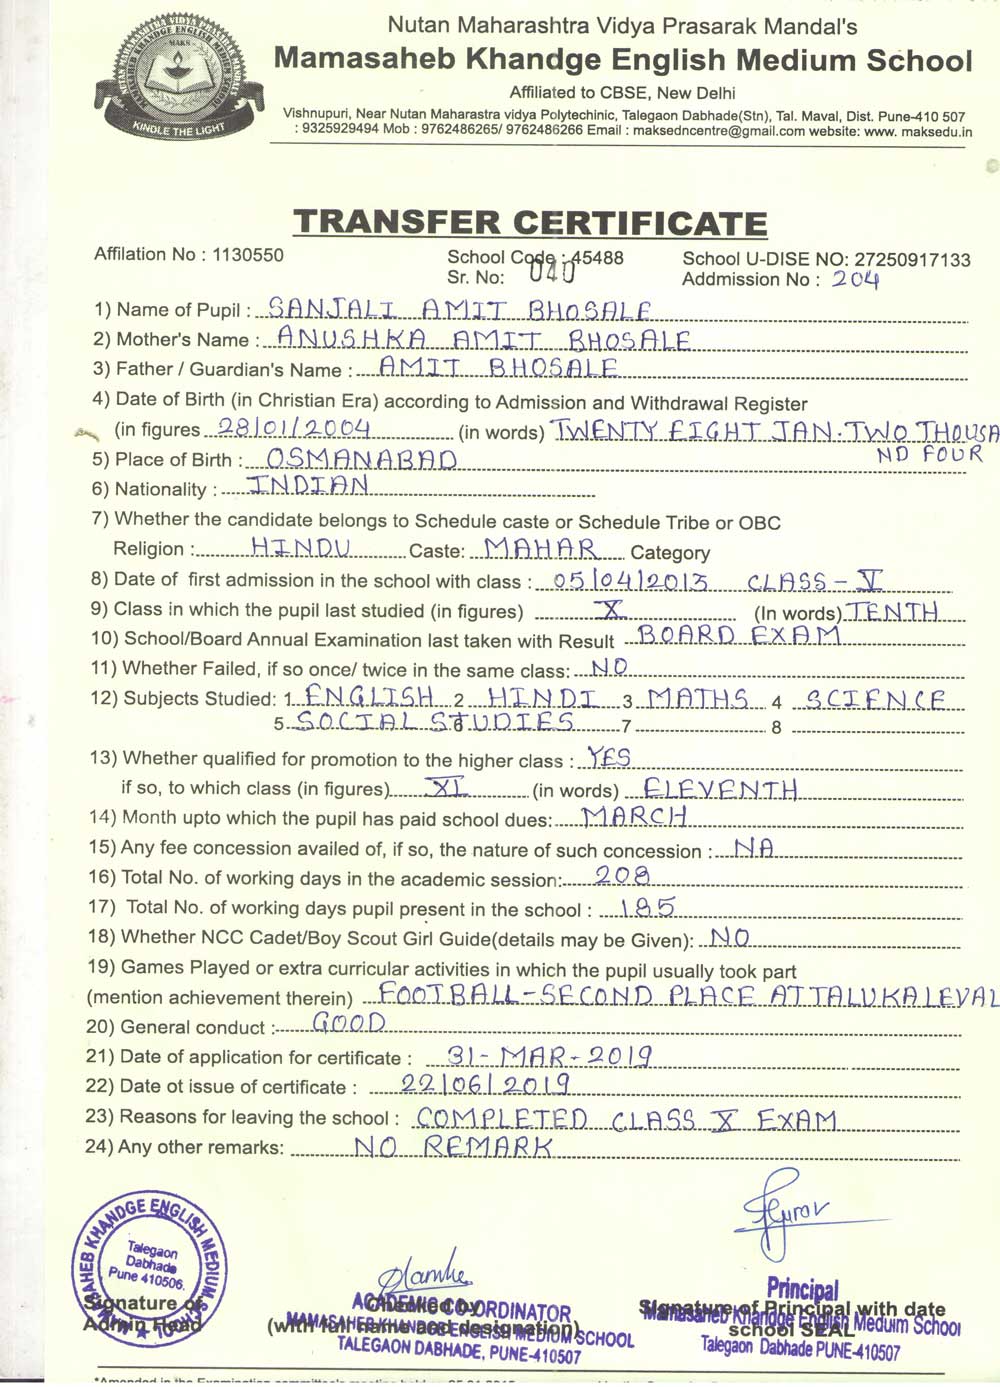 Nutan Maharashtra Vidya Prasarak Mandal's
Mamasaheb Khandge English Medium School
Affiliated to CBSE, New Delhi
Vishnupuri, Near Nutan Maharastra vidya Polytechinic, Talegaon Dabhade(Stn), Tal. Maval, Dist. Pune-410 507
: 9325929494 Mob : 9762486265/ 9762486266 Email : maksedncentre@gmail.com website: www. maksedu.in
MAKS
KINDLE THE LIGHT
TRANSFER CERTIFICATE
Affilation No : 1130550 School Code : 45488 School U-DISE NO: 27250917133
Sr. No: 040 Addmission No : 204
1) Name of Pupil : SANJALI AMIT BHOSALE
2) Mother's Name : ANUSHKA AMIT BHOSALE
3) Father / Guardian's Name : AMIT BHOSALE
4) Date of Birth (in Christian Era) according to Admission and Withdrawal Register
(in figures 28/01/2004 (in words) TWENTY EIGHT JAN. TWO THOUSA
ND FOUR
5) Place of Birth : OSMANABAD
6) Nationality : INDIAN
7) Whether the candidate belongs to Schedule caste or Schedule Tribe or OBC
Religion : HINDU Caste: MAHAR Category
8) Date of first admission in the school with class : 05/04/2013 CLASS - V
9) Class in which the pupil last studied (in figures) X (In words) TENTH
10) School/Board Annual Examination last taken with Result BOARD EXAM
11) Whether Failed, if so once/ twice in the same class: NO
12) Subjects Studied: 1 ENGLISH 2 HINDI 3 MATHS 4 SCIENCE
5 SOCIAL STUDIES 6 7 8
13) Whether qualified for promotion to the higher class : YES
if so, to which class (in figures) XI (in words) ELEVENTH
14) Month upto which the pupil has paid school dues: MARCH
15) Any fee concession availed of, if so, the nature of such concession : NA
16) Total No. of working days in the academic session: 208
17) Total No. of working days pupil present in the school : 185
18) Whether NCC Cadet/Boy Scout Girl Guide(details may be Given): NO
19) Games Played or extra curricular activities in which the pupil usually took part
(mention achievement therein) FOOTBALL - SECOND PLACE AT TALUKA LEVAL
20) General conduct : GOOD
21) Date of application for certificate : 31 - MAR - 2019
22) Date ot issue of certificate : 22/06/2019
23) Reasons for leaving the school : COMPLETED CLASS X EXAM
24) Any other remarks: NO REMARK
MAMASAHEB KHANDGE ENGLISH MEDIUM SCHOOL
Talegaon
Dabhade
Pune 410506.
Signature of
Admin Head
Checked by
(with full name and designation)
ACADEMIC CO-ORDINATOR
MAMASAHEB KHANDGE ENGLISH MEDIUM SCHOOL
TALEGAON DABHADE, PUNE-410507
Gurav
Principal
Signature of Principal with date
school SEAL
Mamasaheb Khandge English Meduim School
Talegaon Dabhade PUNE-410507